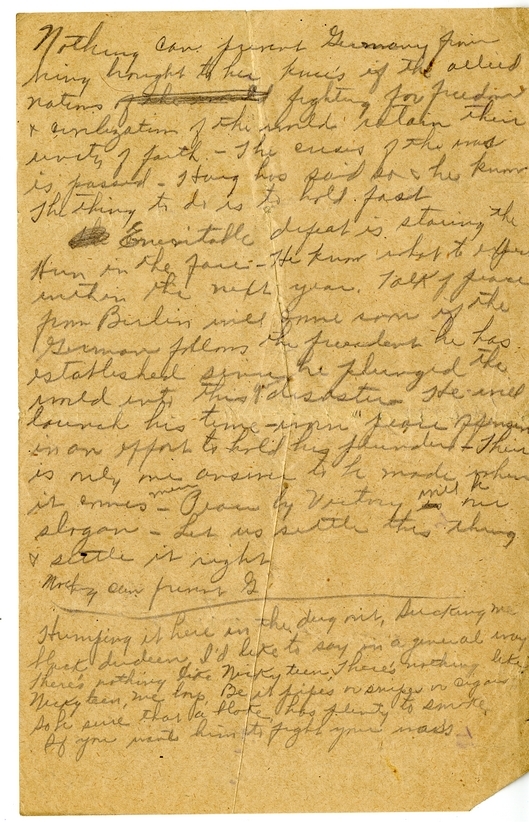 Nothing can prevent Germany from
being brought to her knees if the allied
nations fighting for freedom
& civilization of the world retain their
unity of faith - The crisis of the war
is passed - Haig has said so & he knows
The thing to do is to hold fast
Enevitable defeat is staring the
Hun in the face - He knows what to expect
within the next year. Talk of peace
from Berlin will come soon if the
German follows the precedent he has
established since he plunged the
world into this disaster - He will
launch his time-worn "peace offensive
in an effort to hold his plunder - There
is only one answer to be made when
it comes - Peace by Victory will be our
slogan - Let us settle this thing
& settle it right
Nothing can prevent G
Humping it here in the dug out, Sucking me
black dudeen, I'd like to say in a general way
There's nothing like Nickyteen, There's nothing like
Nickyteen, me boys, Be it pipes or snipes or cigars
So be sure that a bloke, has plenty to smoke,
If you want him to fight your wars.